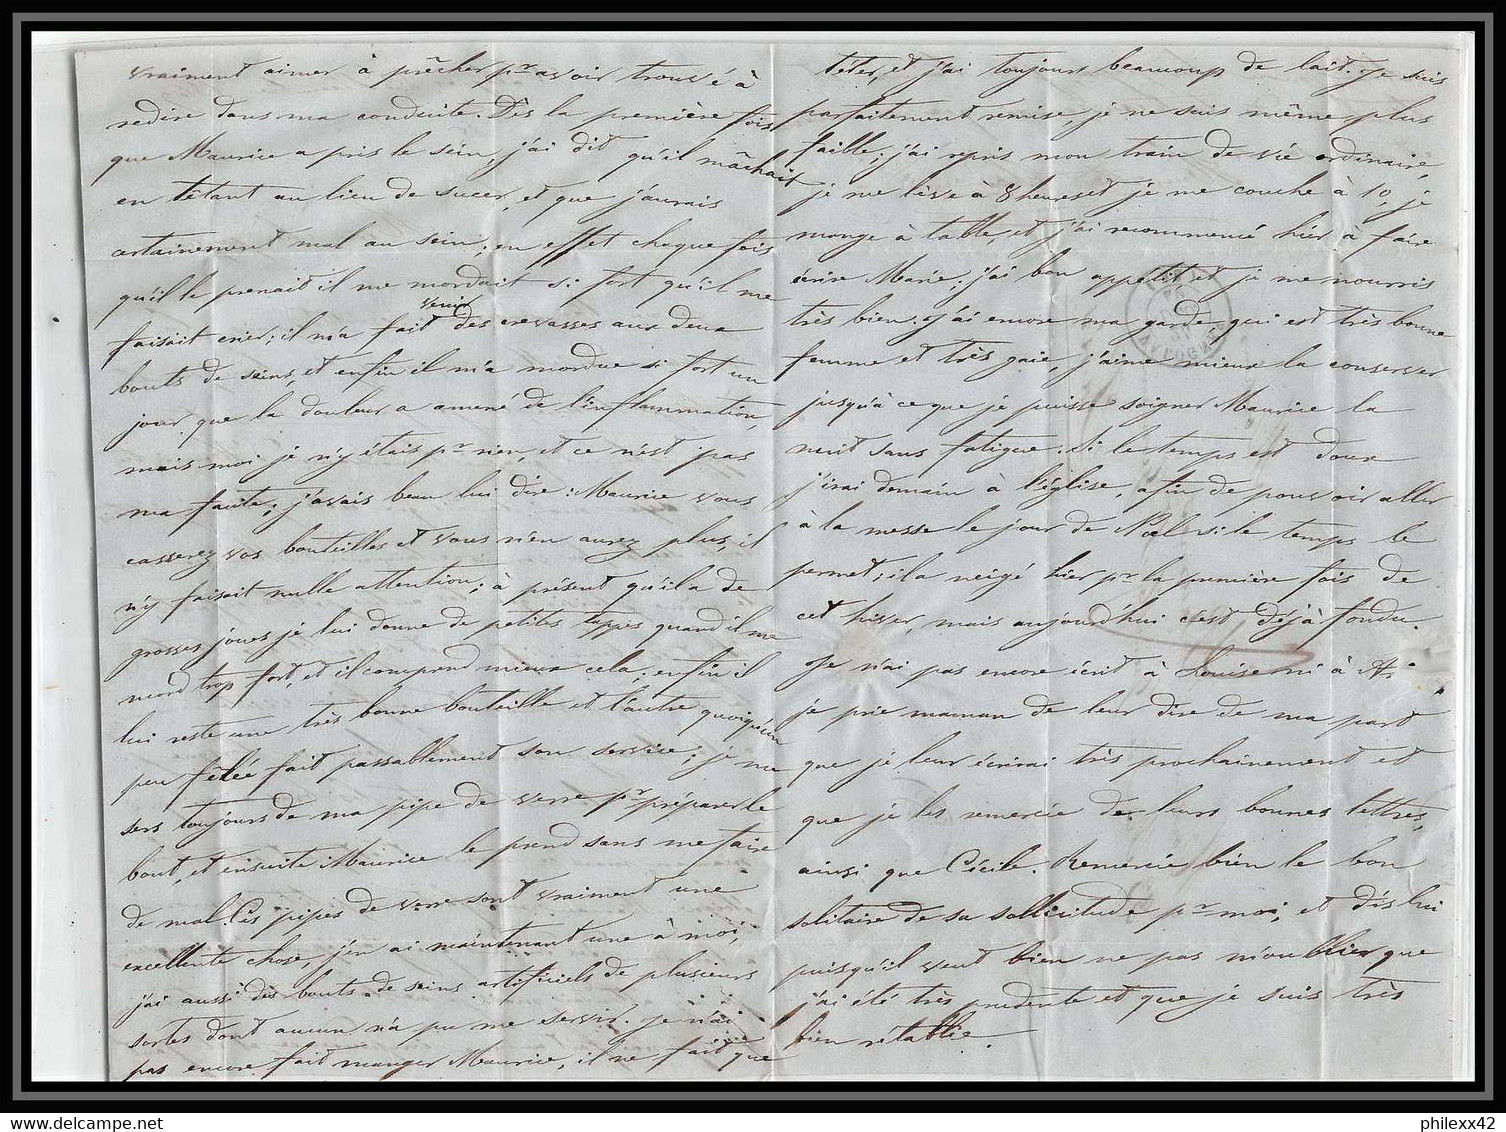 vraiment aimer à prêcher pr avoir trouvé à
redire dans ma conduite. Dès la première fois
que Maurice a pris le sein, j'ai dit qu'il mâchait
en têtant au lieu de sucer, et que j'aurais
certainement mal au sein; en effet chaque fois
qu'il le prenait il me mordait si fort qu'il me
faisait crier; il m'a fait venir des crevasses aux deux
bouts de seins, et enfin il m'a mordue si fort un
jour, que la douleur a amené de l'inflammation,
mais moi je n'y étais pr rien, et ce n'est pas
ma faute; j'avais beau lui dire: Maurice vous
casserez vos bouteilles et vous n'en aurez plus, il
n'y faisait nulle attention; à présent qu'il a de
grosses joues je lui donne de petites tappes quand il me
mord trop fort, et il comprend mieux cela; enfin il
lui reste une très bonne bouteille et l'autre quoiqu'un
peu fêlée fait passablement son service; je me
sers toujours de ma pipe de verre pr préparer le
bout, et ensuite Maurice le prend sans me faire
de mal. Ces pipes de verre sont vraiment une
excellente chose, j'en ai maintenant une à moi,
j'ai aussi des bouts de seins artificiels de plusieurs
sortes dont aucun n'a pu me servir. Je n'ai
pas encore fait manger Maurice, il ne fait que
têter, et j'ai toujours beaucoup de lait. Je suis
parfaitement remise, je ne suis même plus
faible; j'ai repris mon train de vie ordinaire,
je me lève à 8 heures et je me couche à 10, je
mange à table, et j'ai recommencé hier à faire
écrire Marie; j'ai bon appétit et je me nourris
très bien. J'ai encore ma garde, qui est très bonne
femme et très gaie, j'aime mieux la conserver
jusqu'à ce que je puisse soigner Maurice la
nuit sans fatigue. Si le temps est doux
j'irai demain à l'église, afin de pouvoir aller
à la messe le jour de Noël si le temps le
permet; il a neigé hier pr la première fois de
cet hiver, mais aujourd'hui c'est déjà fondu.
Je n'ai pas encore écrit à Louise ni à A.
je prie maman de leur dire de ma part
que je leur écrirai très prochainement et
que je les remercie de leurs bonnes lettres,
ainsi que Cécile. Remercie bien le bon
solitaire de sa sollicitude pr moi, et dis lui
puisqu'il veut bien ne pas m'oublier que
j'ai été très prudente et que je suis très
bien rétablie.
philexx42